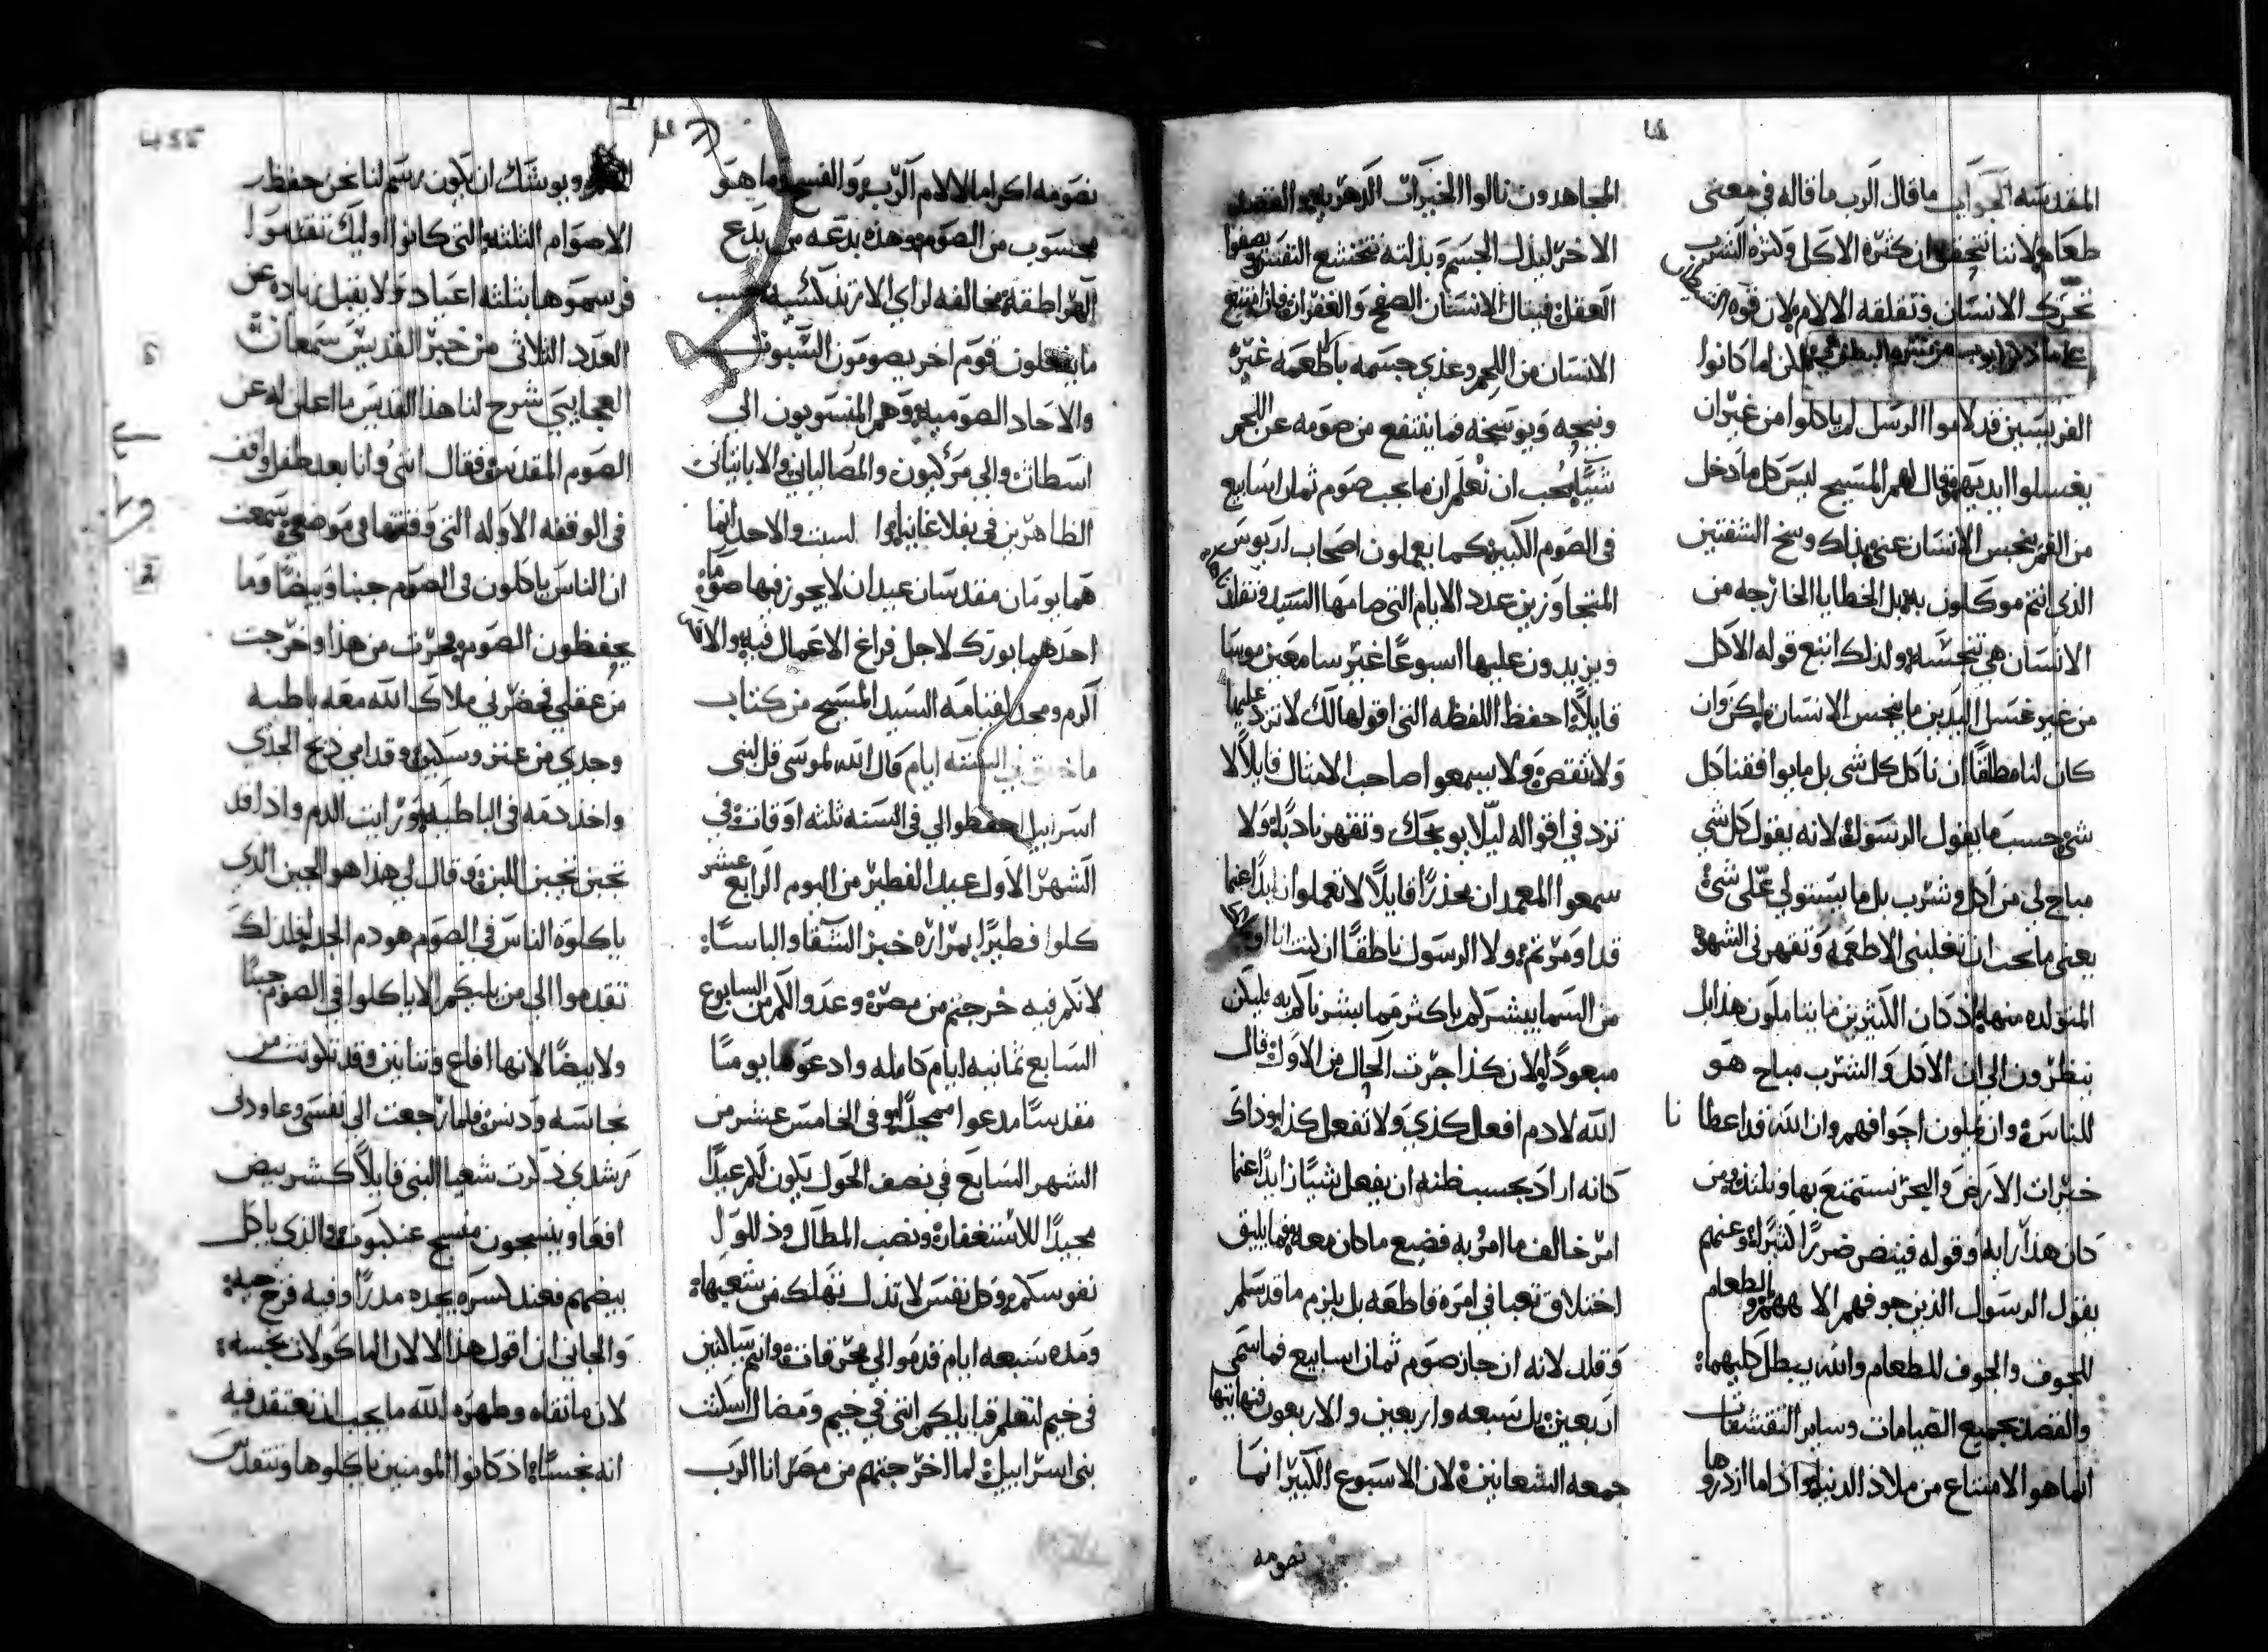 المقدسه الجواب ما قال الرب ما قاله في معنى
طعام لاننا نتحقق ان كثرة الاكل وكثره الشرب
تحرك الانسان وتقلقه الالام لان قوه الشيطان
على ما ذكر ايوب من سره البطن لكن اما كانوا
الفريسين قد لاموا الرسل لم ياكلوا من غير ان
يغسلوا ايديهم فقال لهم المسيح ليس كل ما دخل
من الفم ينجس الانسان عنى بذلك وسخ الشفتين
الذي انتم موكلون به بل الخطايا الخارجه من
الانسان هي تنجسه ولذلك اتبع قوله الاكل
من غير غسل اليدين ما ينجس الانسان ليكن وان
كان لنا مطلقا ان ناكل كل شي بل ما يوافقنا كل
شي حسب ما يقول الرسول لانه يقول كل شي
مباح لي من اكل وشرب بل ما يستولي علي شي
يعني ما يجب ان تغلبني الاطعمه وتقهرني الشهوة
المتولده منها اذ كان الكثيرين ما يتاملون هذا بل
ينظرون الى ان الاكل والشرب مباح هو
للناس وان يملون اجوافهم وان الله قد اعطا نا
خيرات الارض والبحر نستمتع بها ونلتذ ومن
كان هذا رايه وقوله فيتضر ضررا كثيرا وعنهم
يقول الرسول الذين جوفهم الا ههم والطعام
للجوف والجوف للطعام والله يبطل كليهما
والقصد بجميع الصيامات وساير التقشفات
انما هو الامتناع من ملاذ الدنيا واذا ما ازدروها
المجاهدون نالوا الخيرات الدهريه والقصد
الاخر ليذل الجسم وبذلته تتخشع النفس ويصفوا
العقل فينال الانسان الصفح والغفران فان امتنع
الانسان من اللحم وغذي جسمه باطعمه غيره
ونيحه ويوسخه فما ينتفع من صومه عن اللحم
شيا يجب ان نعلم ان ما يجب صوم ثمان اسابيع
في الصوم الكبير كما يعملون اصحاب اريوس
المتجاوزين عدد الايام التي صامها السيد
ويزيدون عليها اسبوعا غير سامعين موسى
قايلا احفظ اللفظه التي اقولها لك لا تزد عليها
ولا تنقص ولا يسمعوا صاحب الامثال قايلا لا
تزد في اقواله ليلا يوبخك وتقهر ناديا ولا
سمعوا المعمدان محذرا قايلا لا تعملوا زايدا عما
قد اومرتم ولا الرسول ناطقا ان كنت انا او ملاك
من السما يبشركم باكثر مما بشرناكم به فليكن
مبعودا لان كذا جرت الحال من الاول قال
الله لادم افعل كذي ولا تفعل كذا وذاك
كانه اراد بحسب ظنه ان يفعل شيا زايدا عما
امر خالف ما امر به فضيع ما كان معه فما يليق
اختلاق تعبا في امرة قاطعه بل يلزم ما قد سلم
وقلد لانه ان جاز صوم ثمان اسابيع فما سمي
اربعين بل تسعه واربعين والاربعون فنهايتها
جمعه الشعانين لان الاسبوع الكبير انما
نصومه
نصومه اكراما لالام الرب والفسح وما هو
محسوب من الصوم وهذه بدعه من بدع
الهراطقه مخالفه لراي الارتدكسيه حسب
ما يفعلون قوم اخر يصومون السبوت
والاحاد الصوميه وهم المنسوبون الى
اسطاث والى مركيون والمصاليانى والابانياني
الظاهرين في بفلاغانيا السبت والاحد انما
هما يومان مقدسان عيدان لا يجوز فيهما صوم
احدهما بورك لاجل فراغ الاعمال فيه والاخر
اكرم ومجد لقيامه السيد المسيح من كتاب
ايام قال الله لموسى قل لبني
اسراييل احفظوا لي في السنه ثلثه اوقات في
الشهر الاول عيد الفطير من اليوم الرابع عشر
كلوا فطيرا بمراره خبز الشقا والباسا
لانكم فيه خرجتم من مصر وعدوا لكم من السابوع
السابع ثمانيه ايام كامله وادعوها يوما
مقدسا مدعوا مبجلا وفي الخامس عشر من
الشهر السابع في نصف الحول يكون لكم عيدا
مجيدا للاستغفار ونصب المطال وذللوا
نفوسكم وكل نفس لا تذل تهلك من شعبها
ومده سبعه ايام قدموا لي محرقات وانتم ساكنين
في خيم لتعلم قبايلكم انني في خيم ومضال اسكنت
بني اسراييل لما اخرجتهم من مصر انا الرب
455
ويوشك ان يكون رسم لنا نحن حفظ
الاصوام الثلثه والتي كانوا اوليك تقدموا
فرسموها بثلثه اعياد ولا يقبل زياده عن
العدد الثلاثي من خبر القديس سمعان
العجايبي شرح لنا هذا القديس ما اعلن له عن
الصوم المقدس فقال انني وانا بعد طفل واقف
في الوقفه الاوله التي وقفتها في موضعي سمعت
ان الناس ياكلون في الصوم جبنا وبيضا وما
يحفظون الصوم فحرت من هذا وخرجت
من عقلي فحضرني ملاك الله معه باطيه
وجدي من عنز وسكين وقدامي ذبح الجدي
واخذ دمه في الباطيه ورايت الدم واذا قد
تجبن كجبن اللبن وقال لي هذا هو الجبن الذي
ياكلوه الناس في الصوم هو دم الجدا فلذلك
تقدموا الى من يليكم الا ياكلوا في الصوم جبنا
ولا بيضا لانها افاع وتنانين وقد تلوثت من
نجاسه ودنس فلما رجعت الى نفسي وعاودني
رشدي ذكرت شعيا النبي قايلا كسر بيض
افعا وينسجون منسج عنكبوت والذي ياكل
بيضهم فعند كسره يجده مدرا وفيه فرخ حيه
والجاني ان اقول هذا الا لان الماكولات نجسه
لان ما نقاه وطهره الله ما يجب ان نعتقد فيه
انه نجسا اذ كانوا المومنين ياكلوها وتتقدس